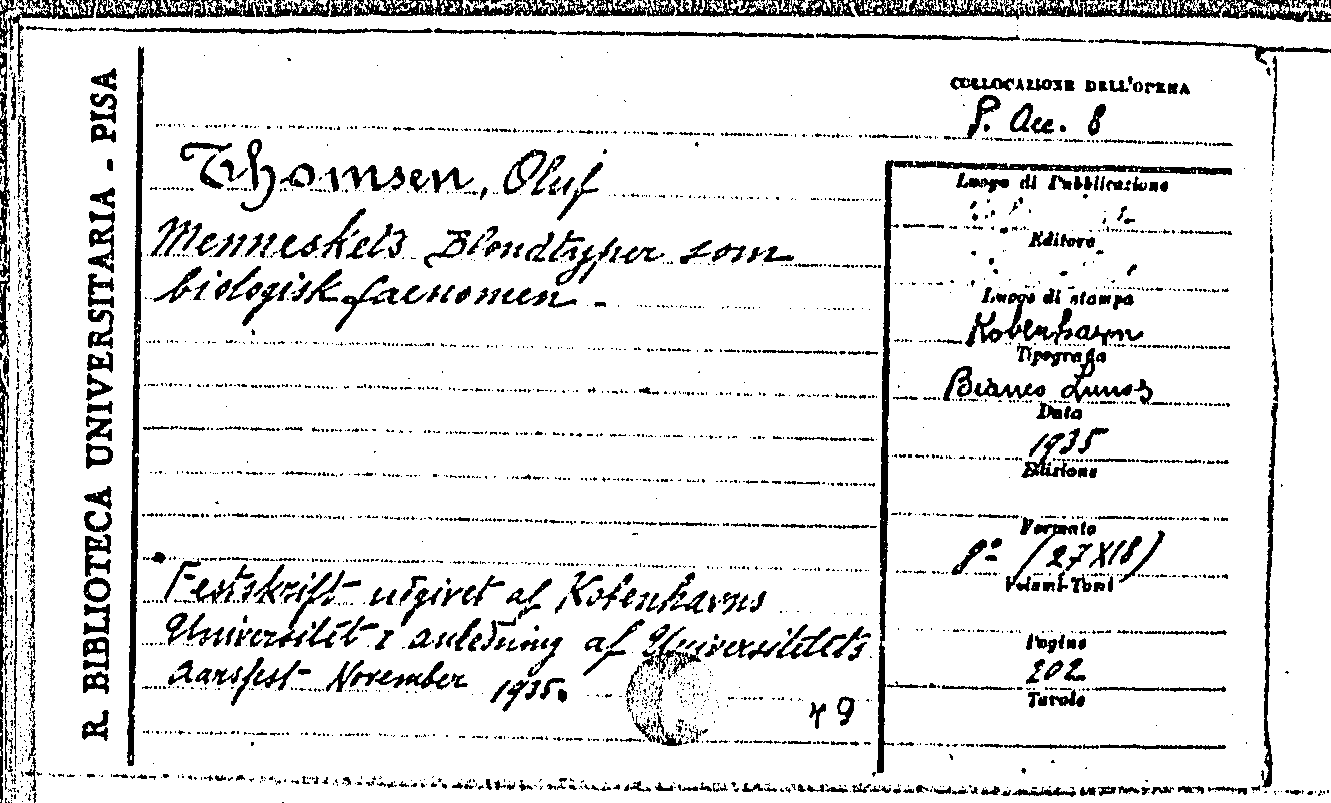 R. BIBLIOTECA UNIVERSITARIA - PISA
COLLOCAZIONE DELL'OPERA
P. Acc. 8
Thomsen, Oluf
Menneskets Blodtyper som
biologisk faenomen -
Luogo di Pubblicazione
Editore
Luogo di stampa
Kobenhavn
Tipografia
Bianco Lunos
Data
1935
Edizione
Formato
8º (27X18)
Volumi-Tomi
Pagine
202
Tavole
Festskrift udgivet af Kobenhavns
Universitet i anledning af Universitets
Aarsfest November 1935.
49